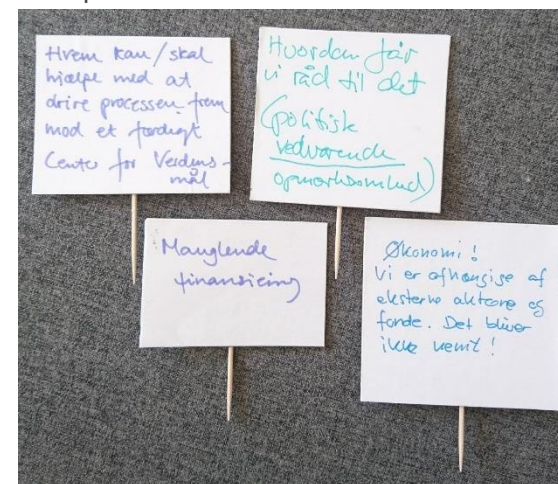 Hvem kan/skal
hjælpe med at
drive processen frem
mod et færdigt
Center for Verdens-
mål
Hvordan får
vi råd til det
(politisk
vedvarende
opmærksomhed)
Manglende
finansiering
Økonomi!
Vi er afhængige af
eksterne aktører og
fonde. Det bliver
ikke nemt!